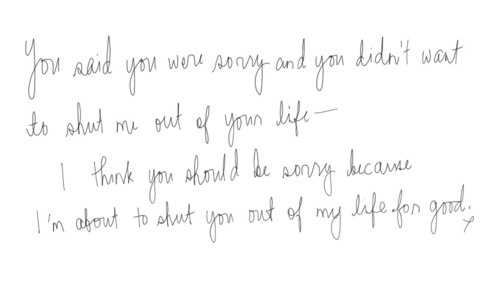 You said you were sorry and you didn't want
to shut me out of your life—
I think you should be sorry because
I'm about to shut you out of my life for good.
x